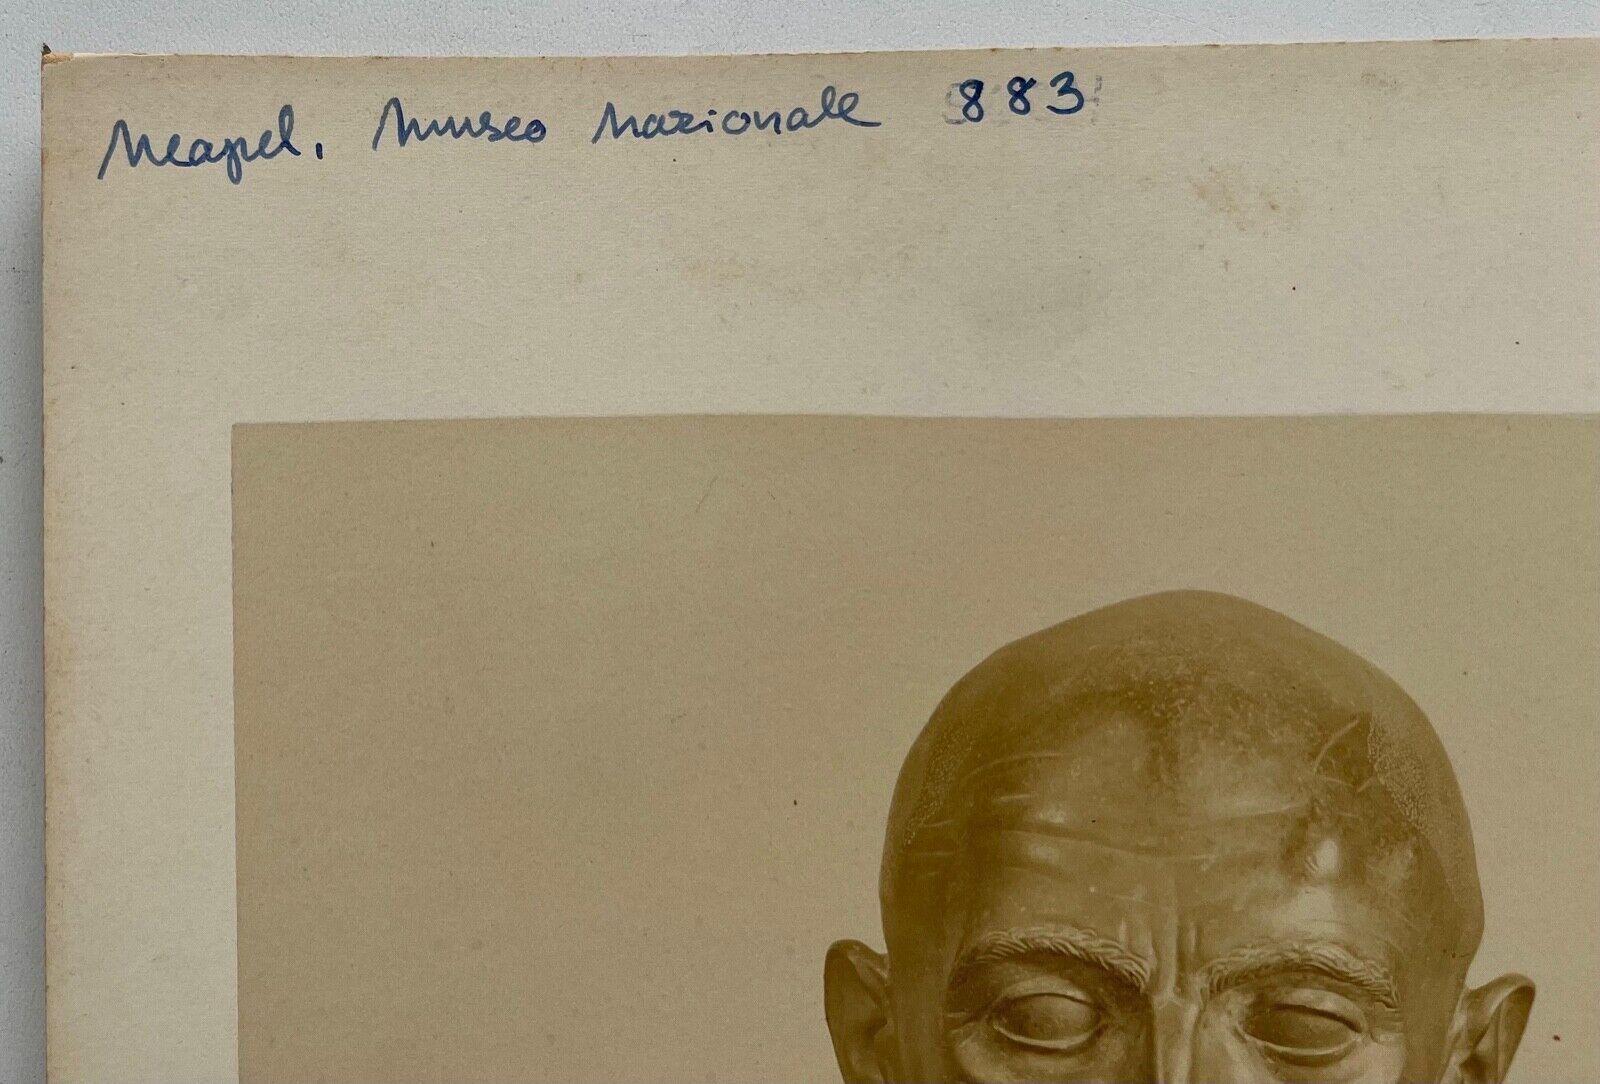 Neapel. Museo Nazionale 883